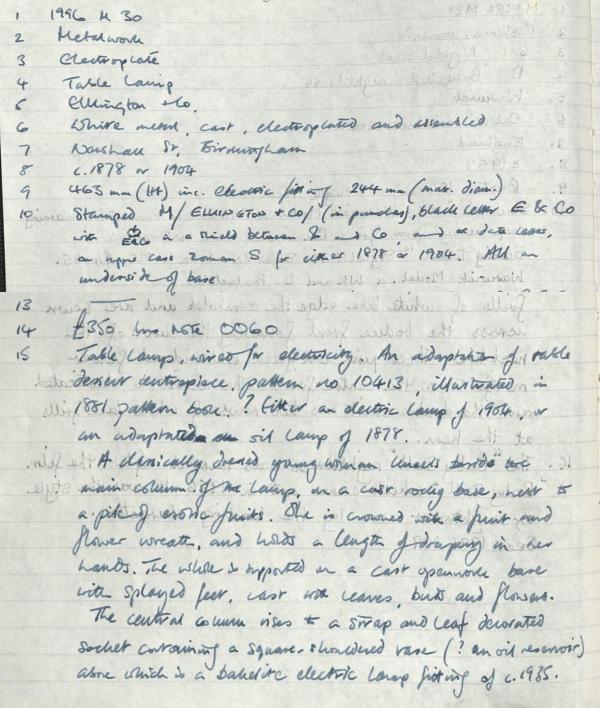 1 1996 M 30
2 Metalwork
3 Electroplate
4 Table Lamp
5 Elkington + Co.
6 White metal, cast, electroplated and assembled
7 Newhall St, Birmingham
8 c.1878 or 1904
9 463 mm (Ht) inc. electric fitting 244 mm (max. diam.)
10 Stamped M/ ELKINGTON + CO/ (in punches), black letter E & Co
with E&Co in a shield between & and Co, and date letter,
an upper case roman S for either 1878 or 1904. All on
underside of base
13
14 £350 Inv. Note 0060
15 Table Lamp, wired for electricity. An adaptation of table
dessert centrepiece, pattern no 10413, illustrated in
1881 pattern book. ? Either an electric lamp of 1904, or
an adaptated oil lamp of 1878.
A classically dressed young woman kneels beside the
main column of the lamp, on a cast rocky base, next to
a pile of exotic fruits. She is crowned with a fruit and
flower wreath, and holds a length of drapery in her
hands. The whole is supported on a cast openwork base
with splayed feet, cast with leaves, buds and flowers.
The central column rises to a strap and leaf decorated
socket containing a square-shouldered vase (? an oil reservoir)
above which is a bakelite electric lamp fitting of c.1935.